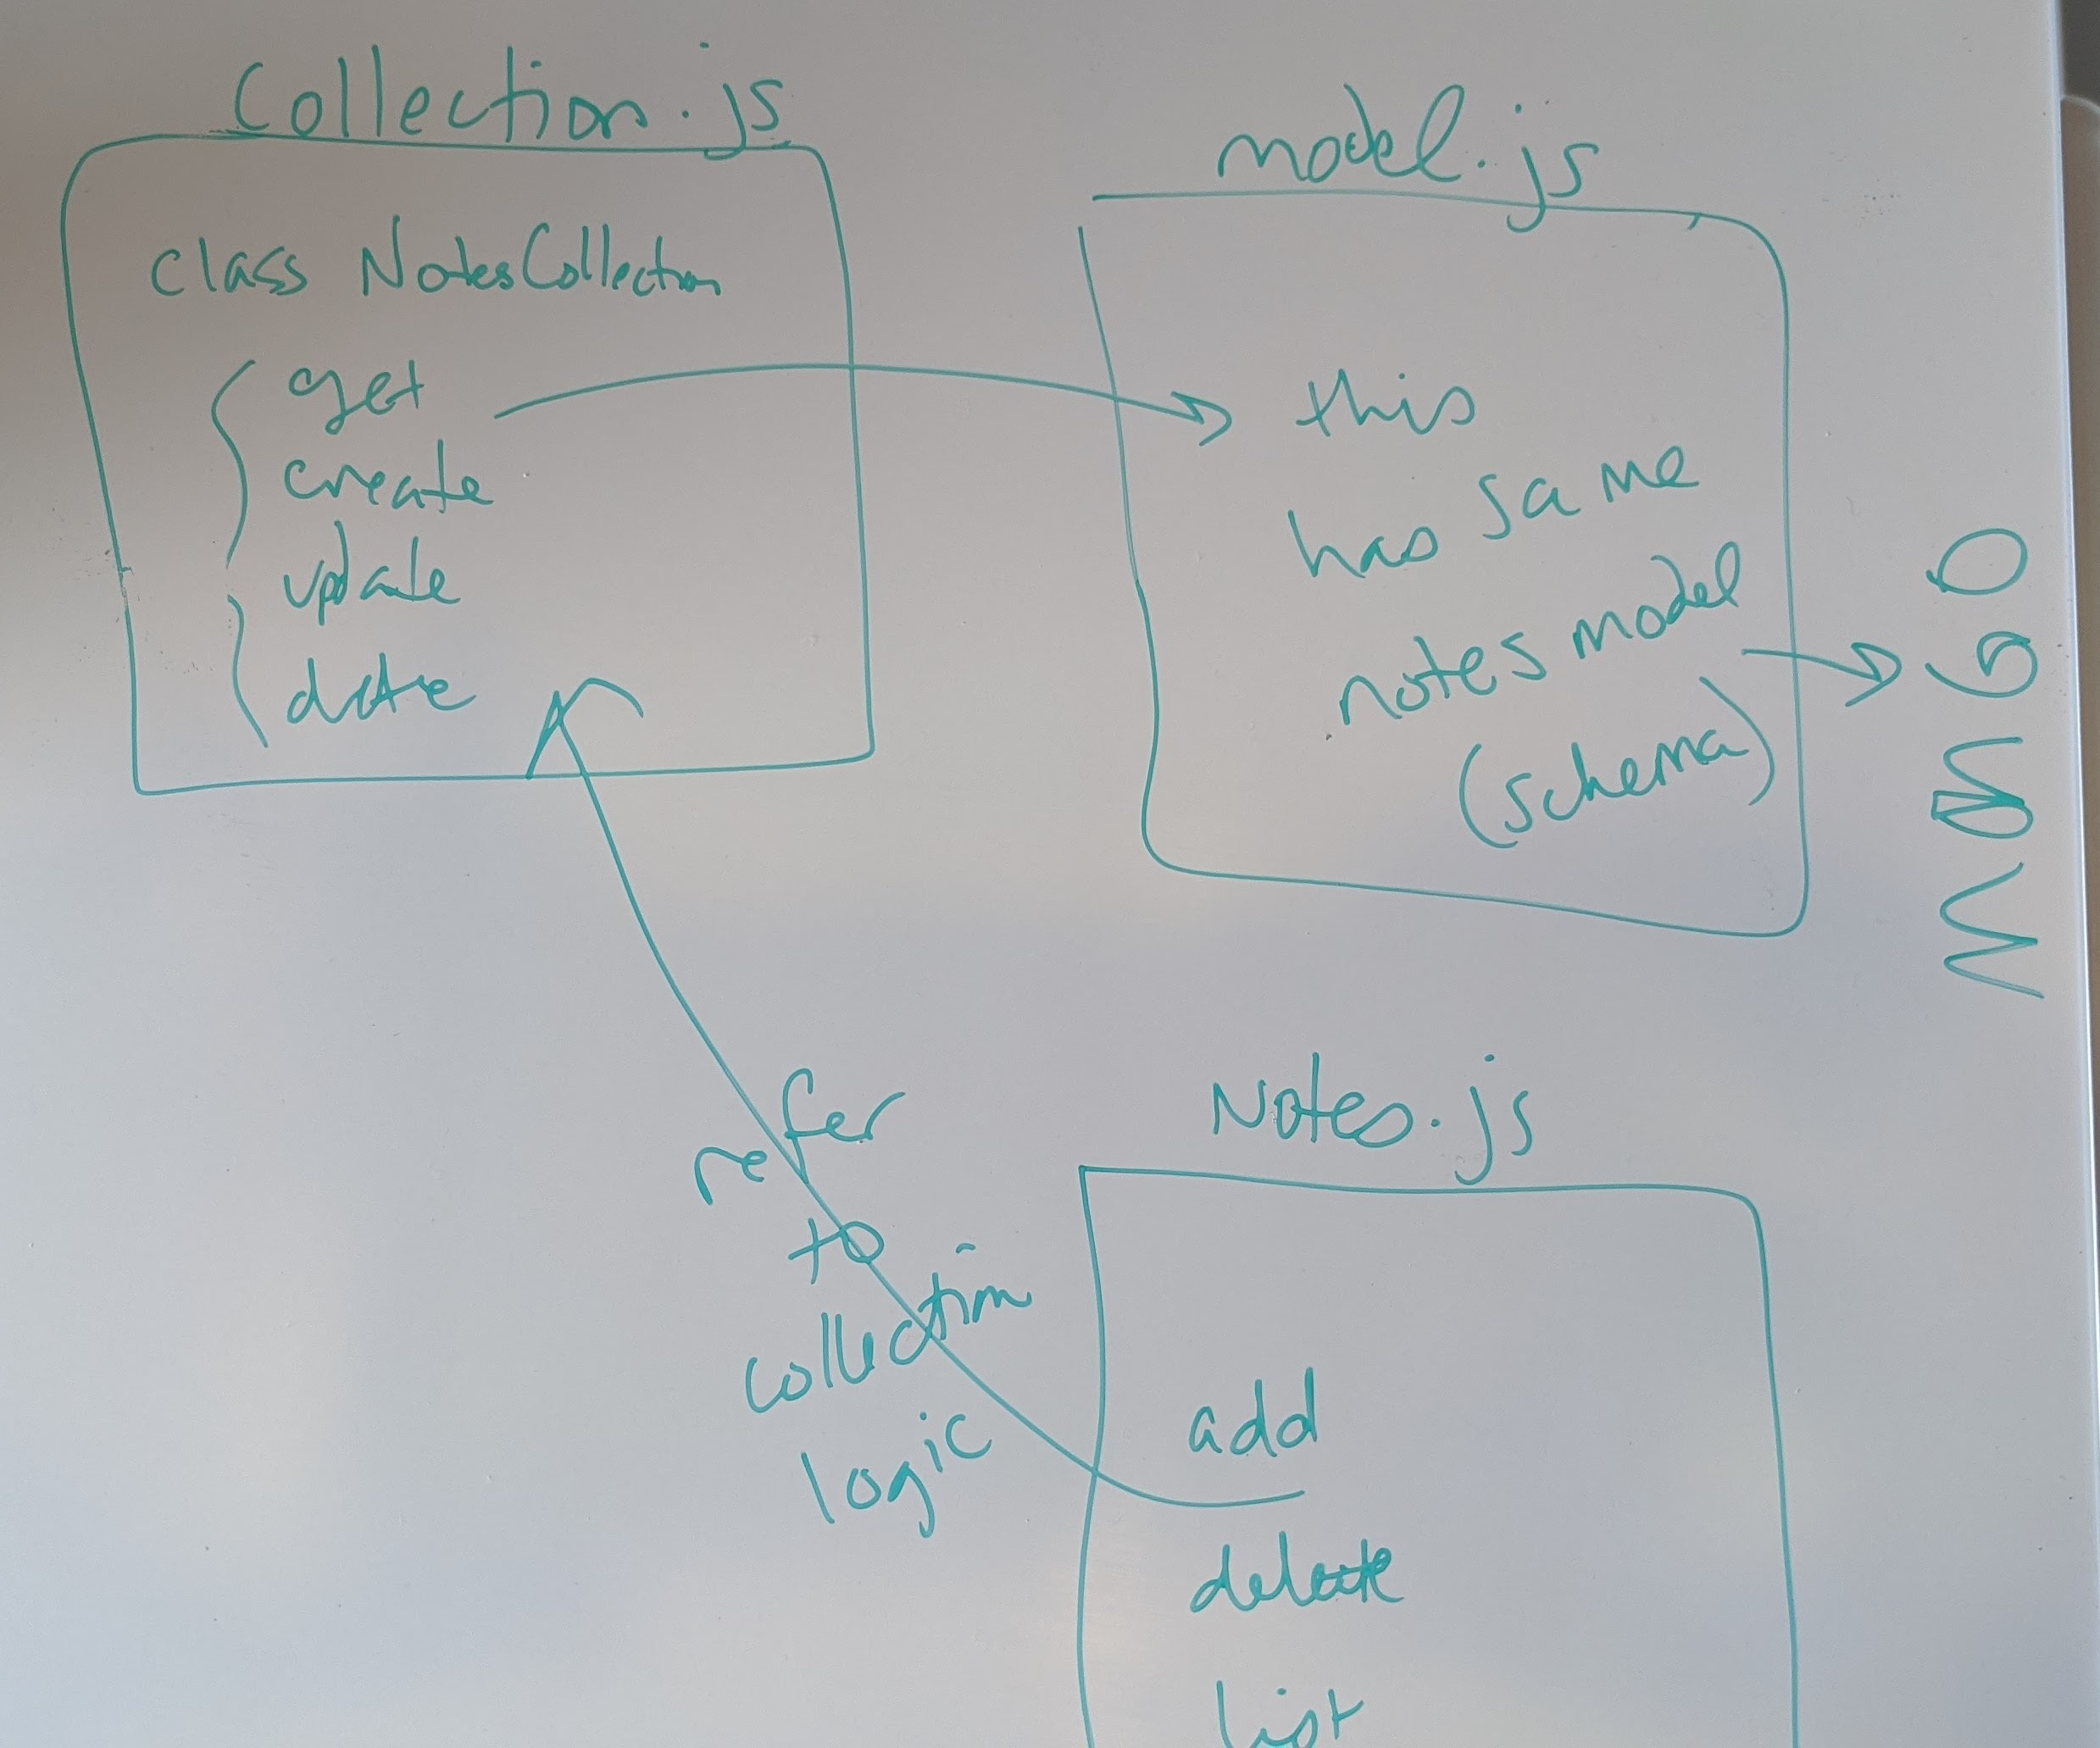 Collection.js
class NotesCollection
get
create
update
model.js
this
has same
notes model
(schema)
MONGO
refer
to
collection
logic
Notes.js
add
delete
list